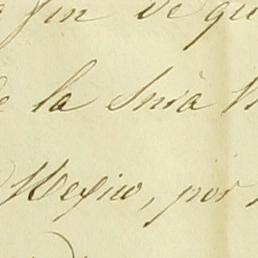 fin de qu
de la Snía
Mexico, por